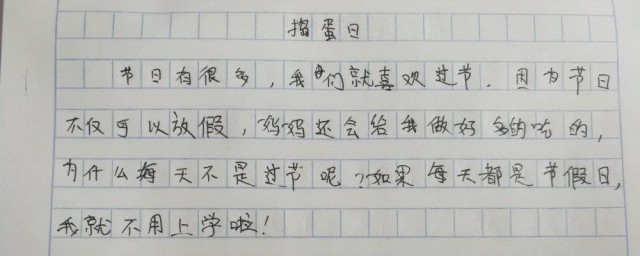 捣蛋日
节日有很多，我们就喜欢过节．因为节日
不仅可以放假，妈妈还会给我做好多的吃的，
为什么每天不是过节呢？如果每天都是节假日，
我就不用上学啦！